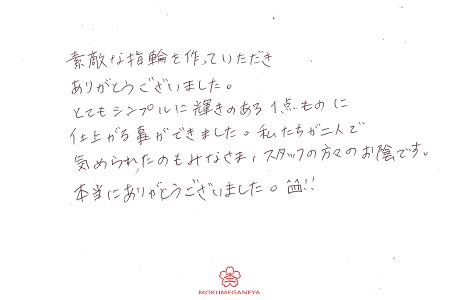 素敵な指輪を作っていただき
ありがとうございました。
とてもシンプルに輝きのある1点ものに
仕上がる事ができました。私たちが二人で
気められたのもみなさま、スタッフの方々のお陰です。
本当にありがとうございました。!!
MOKUMEGANEYA